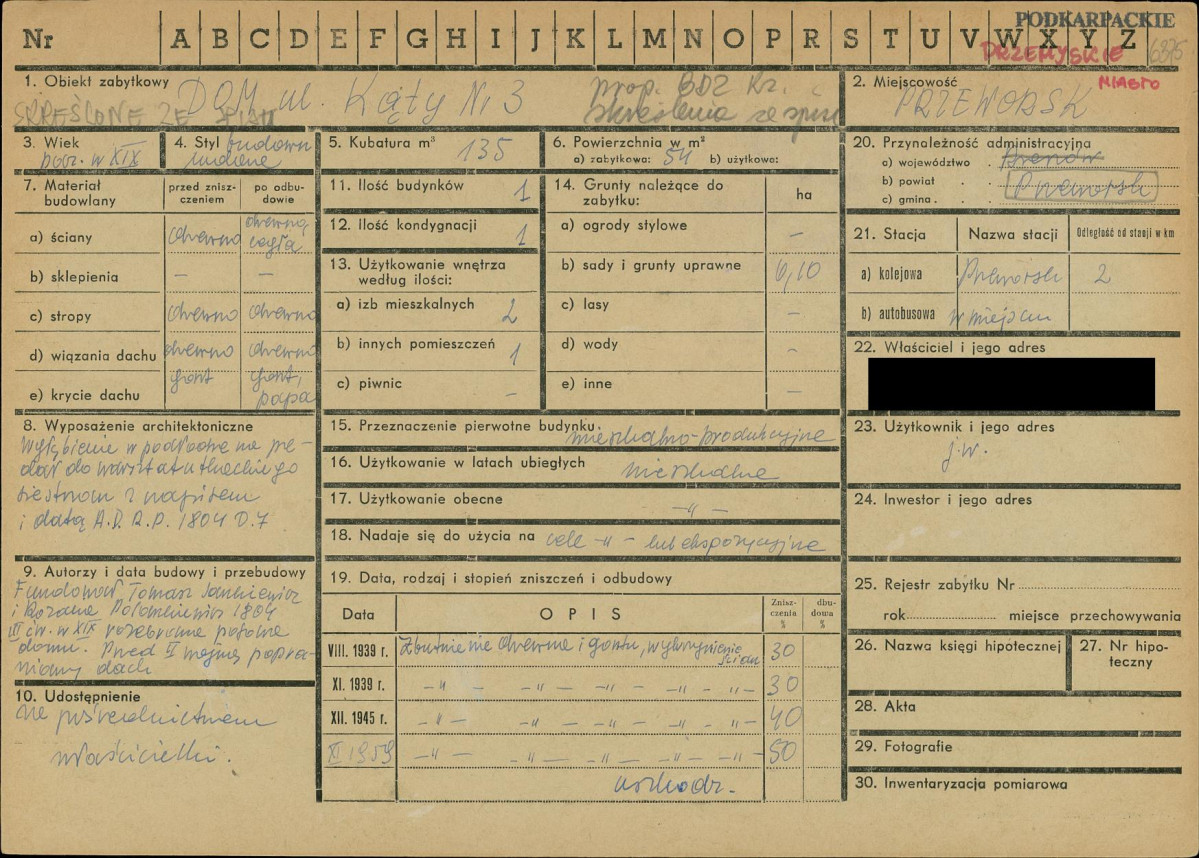 Nr A B C D E F G H I J K L M N O P R S T U V W X Y Z
PODKARPACKIE
PRZEMYSKIE 6375
MIASTO
1. Obiekt zabytkowy DOM ul. Kąty Nr 3
SKREŚLONE ZE SPISU
prop. BDZ Kr.
skreślenia ze spisu
2. Miejscowość
PRZEWORSK
3. Wiek
pocz. w XIX
4. Styl budown.
5. Kubatura m³ 135
6. Powierzchnia w m²
a) zabytkowa: 54 b) użytkowe:
7. Materiał budowlany
przed znisz-
czeniem
po odbu-
dowie
a) ściany drewno drewno, cegła
b) sklepienia – –
c) stropy drewno drewno
d) wiązania dachu drewno drewno
e) krycie dachu gont gont, papa
8. Wyposażenie architektoniczne
Wyżłobienie w podłodze na pe-
dał do warsztatu tkackiego
siestrzan z napisem
i datą A.D. R.P. 1804 D.7
9. Autorzy i data budowy i przebudowy
Fundował Tomasz
i 1804
III ćw. w XIX rozebrano połowę
domu. Przed II wojną popra-
wiony dach
10. Udostępnienie
za pośrednictwem
właścicielki.
11. Ilość budynków 1
12. Ilość kondygnacji 1
13. Użytkowanie wnętrza
według ilości:
a) izb mieszkalnych 2
b) innych pomieszczeń 1
c) piwnic –
14. Grunty należące do
zabytku: ha
a) ogrody stylowe –
b) sady i grunty uprawne 0,10
c) lasy –
d) wody –
e) inne –
15. Przeznaczenie pierwotne budynku mieszkalno-produkcyjne
16. Użytkowanie w latach ubiegłych mieszkalne
17. Użytkowanie obecne –„–
18. Nadaje się do użycia na cele –„– lub ekspozycyjne
19. Data, rodzaj i stopień zniszczeń i odbudowy
Data OPIS Znisz-
czenia
%
dbu-
dowa
%
VIII. 1939 r. Zbutwienie drewna i gontu, wybrzuszenie ścian 30
XI. 1939 r. –„– –„– –„– –„– „– 30
XII. 1945 r. –„– –„– –„– –„– „– 40
XI 1959 –„– –„– –„– –„– „– 50
20. Przynależność administracyjna
a) województwo
b) powiat Przeworsk
c) gmina
21. Stacja Nazwa stacji Odległość od stacji w km
a) kolejowa Przeworsk 2
b) autobusowa w miejscu
22. Właściciel i jego adres
23. Użytkownik i jego adres
j.w.
24. Inwestor i jego adres
25. Rejestr zabytku Nr
rok miejsce przechowywania
26. Nazwa księgi hipotecznej
27. Nr hipo-
teczny
28. Akta
29. Fotografie
30. Inwentaryzacja pomiarowa